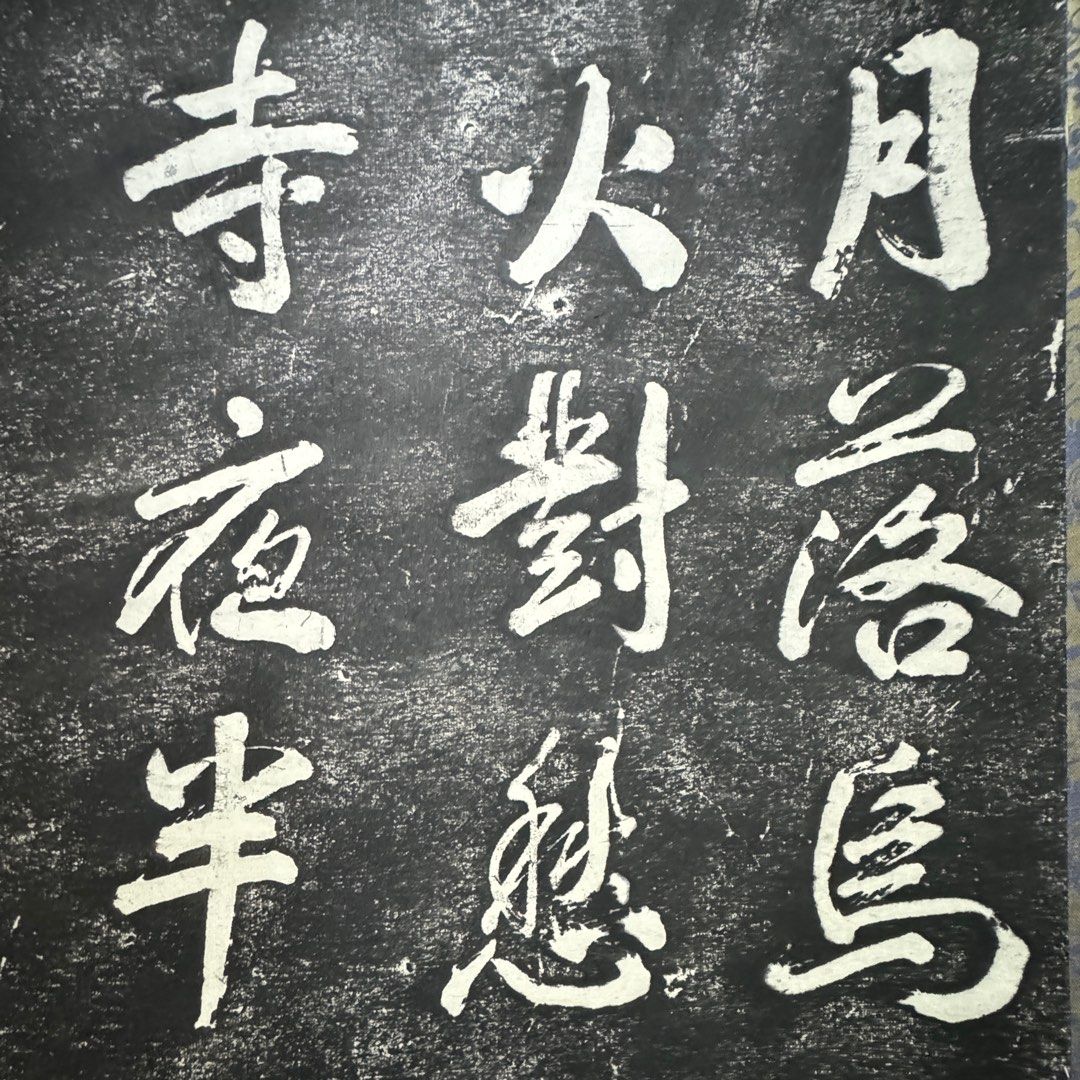 月落烏
火對愁
寺夜半